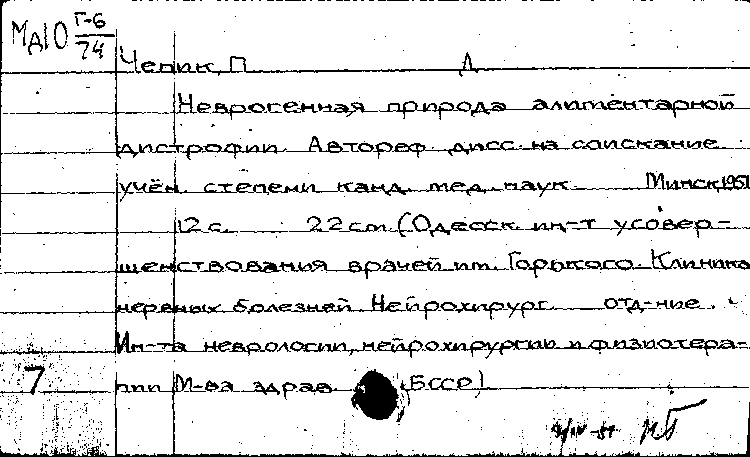 МД10 Г-6
74
Чепик, П Д
Неврогенная природа алиментарной
дистрофии. Автореф. дисс. на соискание
учён. степени канд. мед. наук. Минск, 1951
12 с. 22 см. (Одесск. ин-т усовер-
шенствования врачей им. Горького. Клиника
нервных болезней. Нейрохирург. отд-ние.
Ин-та неврологии, нейрохирургии и физиотера-
7 пии М-ва здрав. БССР)